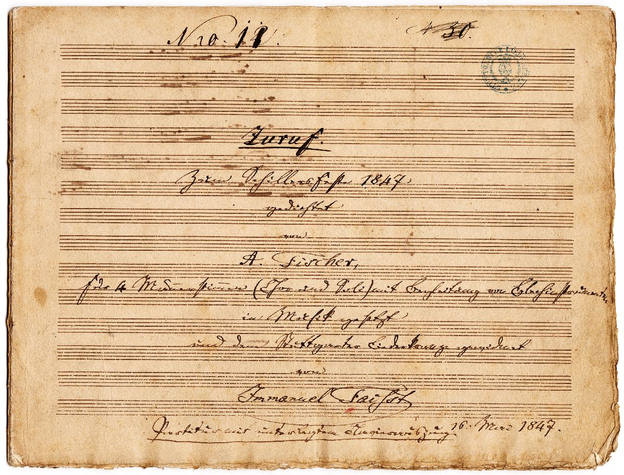 Nro. 11.
30.
Zuruf.
Zum Schillersfeste 1847
gedichtet
von
A. Fischer,
für 4 Männerstimmen (Chor und Solo) mit Begleitung von Blechinstrumenten
in Musik gesetzt
und dem Stuttgarter Liederkranze gewidmet
von
Immanuel Faißt
Partitur mit unterlegtem Klavierauszug. 16. Mai 1847.